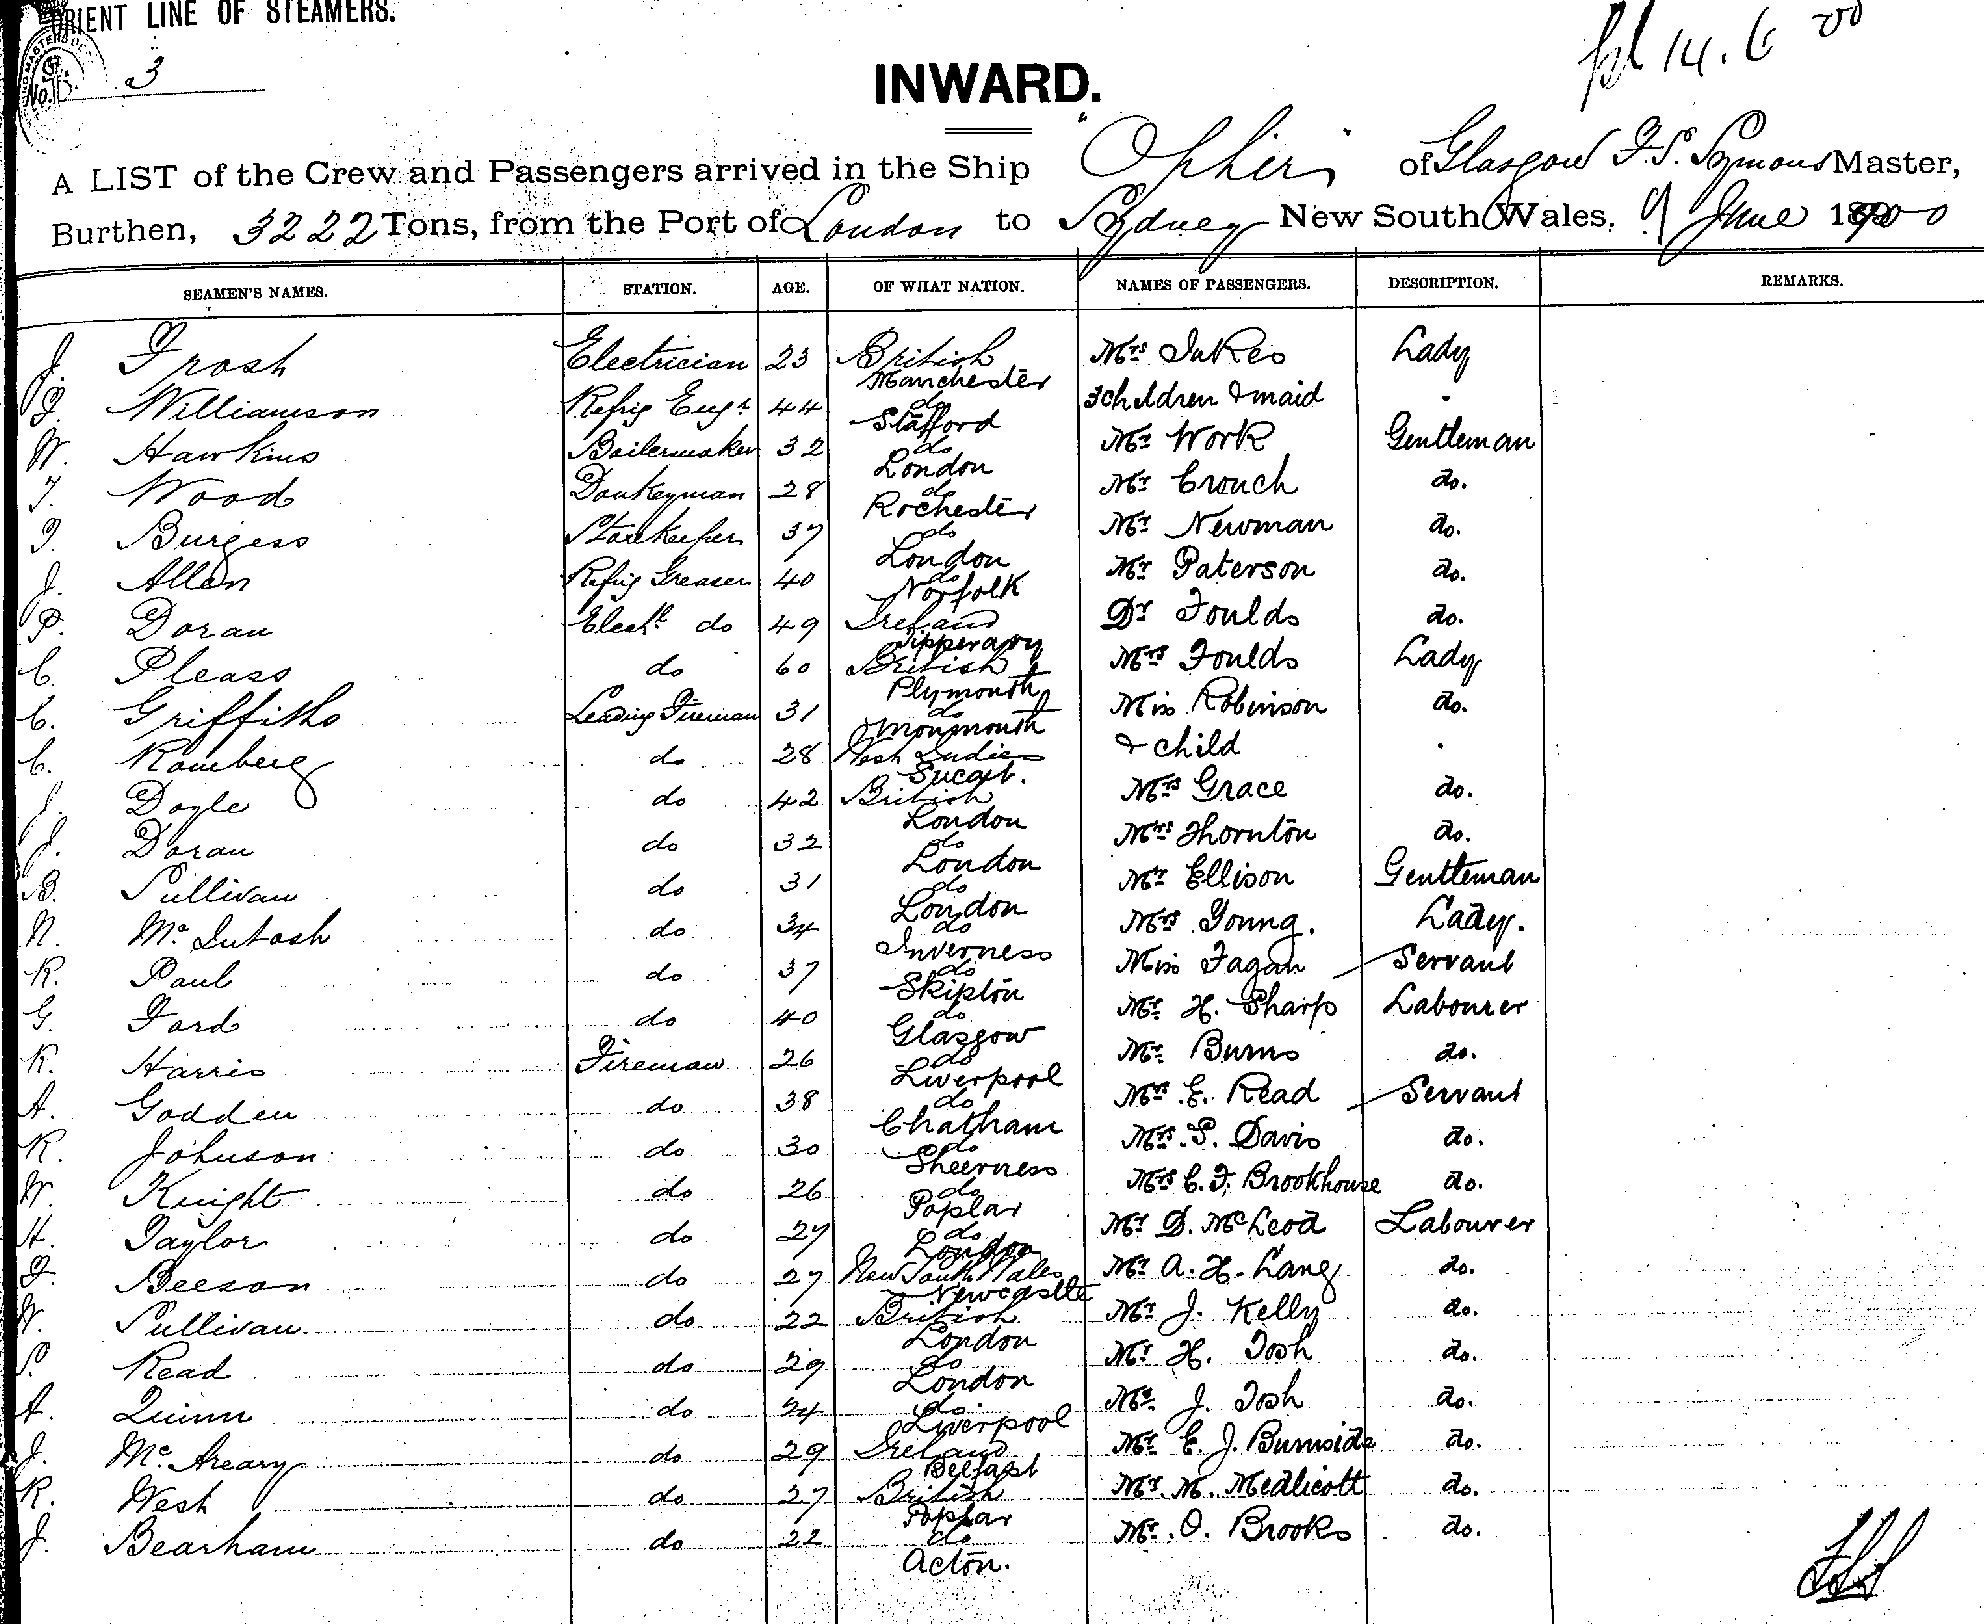 ORIENT LINE OF STEAMERS.
No. 3
14.6.00
INWARD.
A LIST of the Crew and Passengers arrived in the Ship "Ophir" of Glasgow F. S. Symons Master,
Burthen, 3222 Tons, from the Port of London to Sydney New South Wales, 9 June 1900
SEAMEN'S NAMES. STATION. AGE. OF WHAT NATION. NAMES OF PASSENGERS. DESCRIPTION. REMARKS.
J. Frost Electrician 23 British Manchester Mrs Jukes Lady
Williamson Refrig Engr 44 do Stafford 3 children & maid
W. Hawkins Boilermaker 32 do London Mr Work Gentleman
T. Wood Donkeyman 28 do Rochester Mr Crouch do.
Burgess Storekeeper 37 do London Mr Newman do.
J. Allen Refrig Greaser 40 do Norfolk Mr Paterson do.
P. Doran Elect. do 49 Ireland Tipperary Dr Foulds do.
C. Pleass do 60 British Plymouth Mrs Foulds Lady
C. Griffiths Leading Fireman 31 do Monmouth Miss Robinson do.
C. Romberg do 28 West Indies & child
J. Doyle do 42 British London Mrs Grace do.
J. Doran do 32 do London Mrs Thornton do.
B. Sullivan do 31 do London Mr Ellison Gentleman
N. McIntosh do 34 do Inverness Mrs Young. Lady.
R. Paul do 37 do Skipton Miss Fagan Servant
G. Ford do 40 do Glasgow Mr H. Sharp Labourer
R. Harris Fireman 26 do Liverpool Mr Burns do.
A. Godden do 38 do Chatham Mrs E. Read Servant
R. Johnson do 30 do Sheerness Mrs S. Davis do.
W. Knight do 26 do Poplar Mrs C. F. Brookhouse do.
H. Taylor do 27 do London Mr D. McLeod Labourer
Beeson do 27 New South Wales Newcastle Mr A. H. Lang do.
W. Sullivan do 22 British London Mr J. Kelly do.
Read do 29 do London Mr H. Tosh do.
A. Quinn do 24 do Liverpool Mr J. Tosh do.
J. McAreavy do 29 Ireland Belfast Mr E. J. Burnside do.
R. West do 27 British Poplar Mr M. Medlicott do.
J. Bearham do 22 do Acton. Mr O. Brooks do.